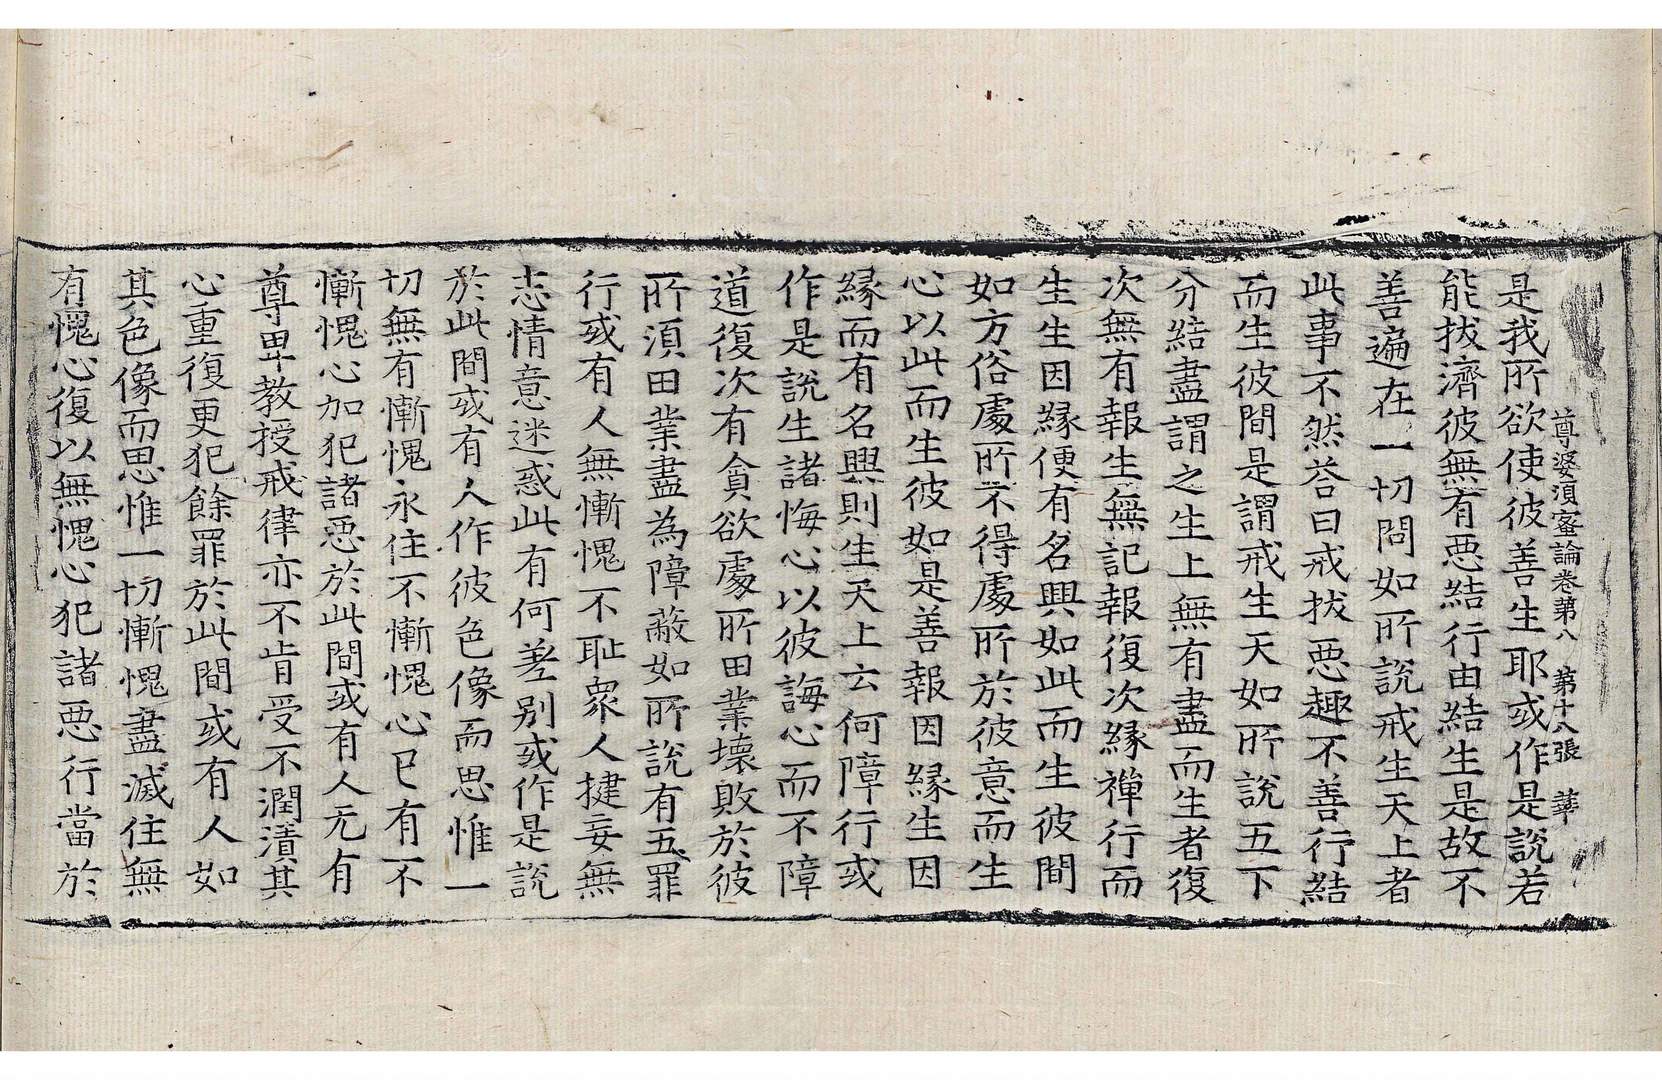 尊婆湏蜜論卷第八 第十八張 華
是我所欲使彼善生耶或作是說若
能拔濟彼無有惡結行由結生是故不
善遍在一切問如所說戒生天上者
此事不然荅曰戒拔惡趣不善行結
而生彼間是謂戒生天如所說五下
分結盡謂之生上無有盡而生者復
次無有報生無記報復次緣禪行而
生生因緣便有名興如此而生彼間
如方俗處所不得處所於彼意而生
心以此而生彼如是善報因緣生因
緣而有名興則生天上云何障行或
作是說生諸悔心以彼誨心而不障
道復次有貪欲處所田業壞敗於彼
所湏田業盡為障蔽如所說有五罪
行或有人無慚愧不恥衆人揵妄無
志情意迷惑此有何差別或作是說
於此間或有人作彼色像而思惟一
切無有慚愧永住不慚愧心已有不
慚愧心加犯諸惡於此間或有人无有
尊卑教授戒律亦不肯受不潤漬其
心重復更犯餘罪於此間或有人如
其色像而思惟一切慚愧盡滅住無
有愧心復以無愧心犯諸惡行當於